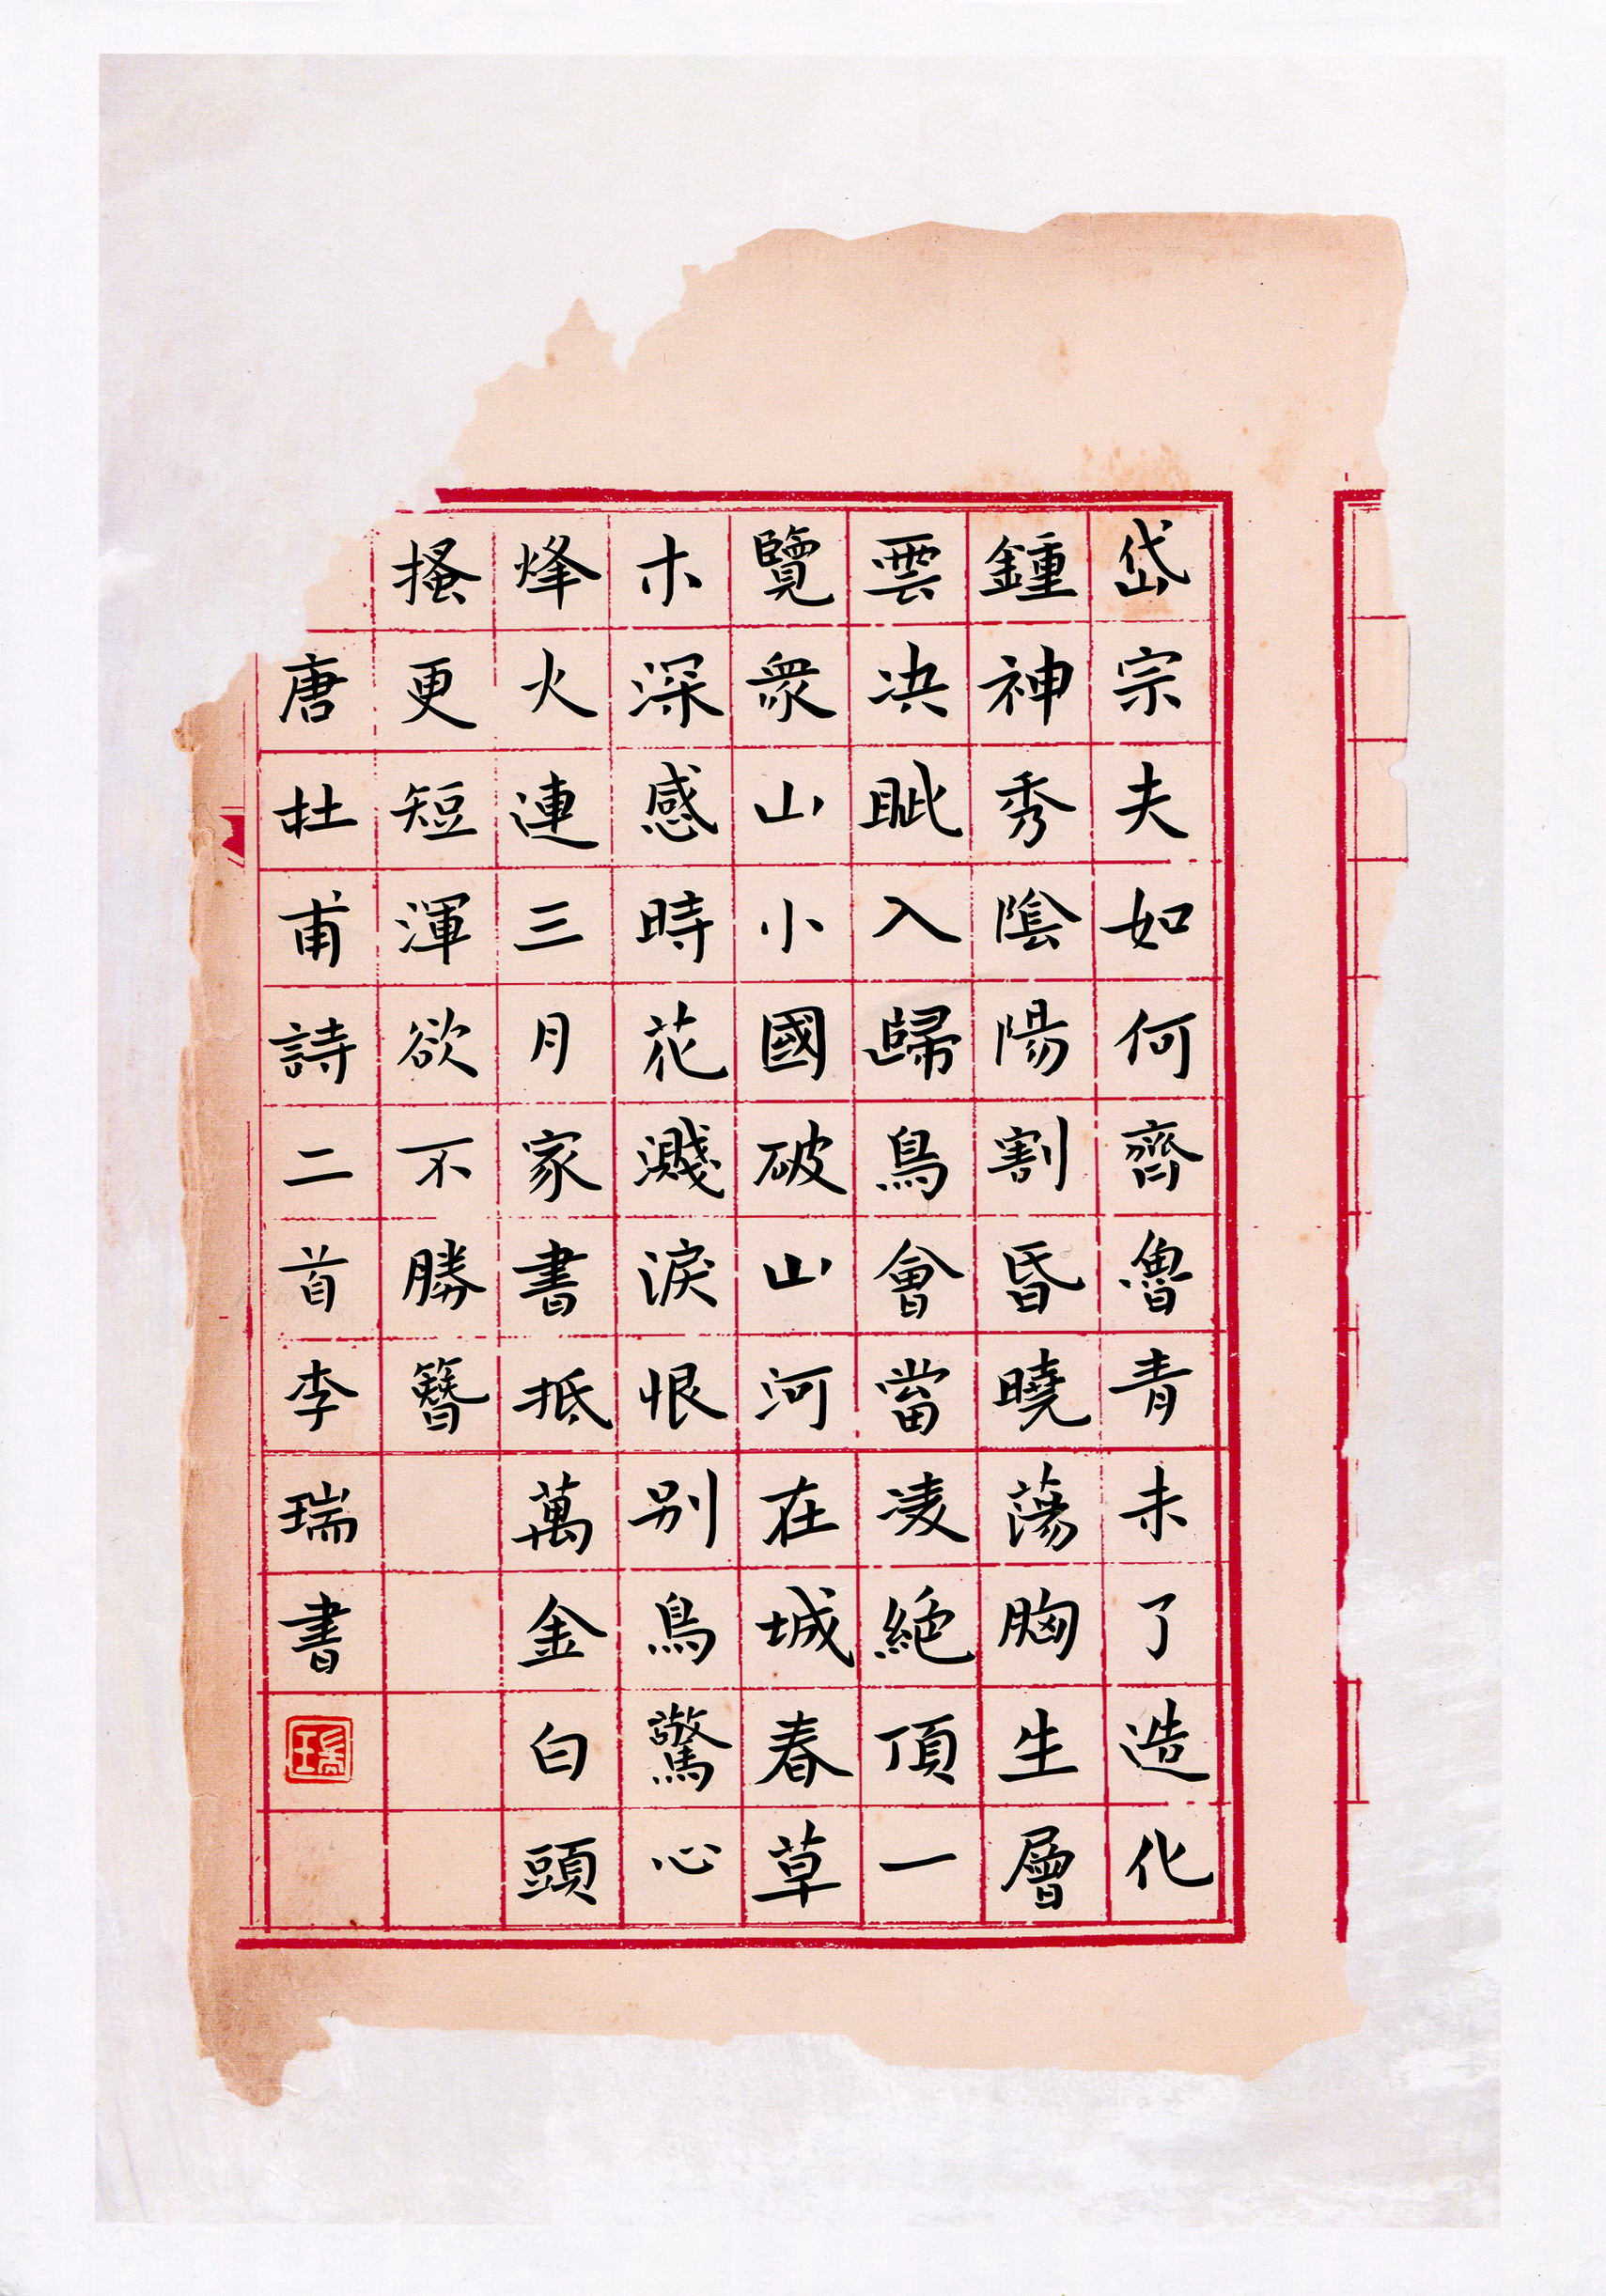 岱宗夫如何齊魯青未了造化
鍾神秀陰陽割昏曉蕩胸生層
雲決眦入歸鳥會當凌絕頂一
覽衆山小國破山河在城春草
木深感時花濺淚恨别鳥驚心
烽火連三月家書抵萬金白頭
搔更短渾欲不勝簪
唐杜甫詩二首李瑞書
瑞